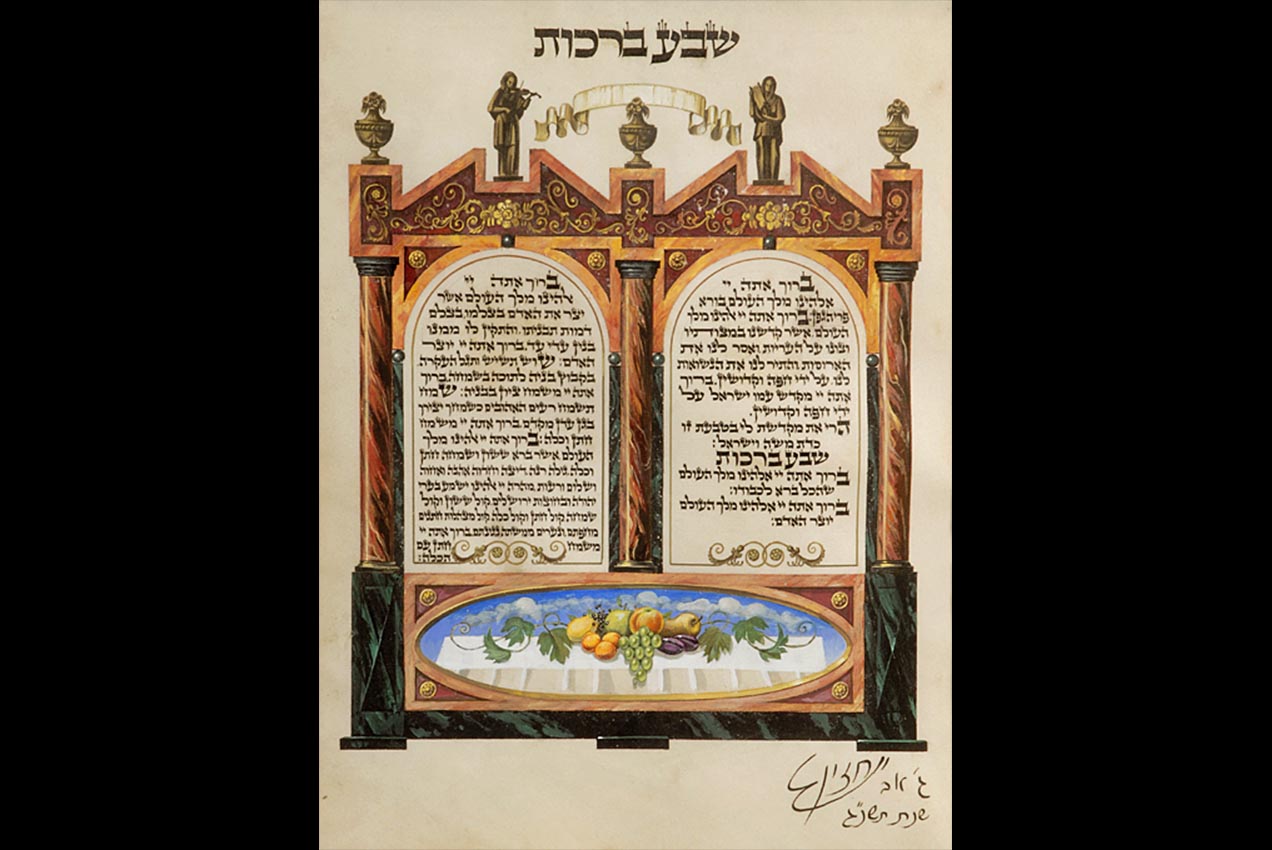 שבע ברכות
ברוך אתה יי
אלהינו מלך העולם בורא
פרי הגפן: ברוך אתה יי אלהינו מלך
העולם, אשר קדשנו במצותיו
וצונו על העריות ואסר לנו את
הארוסות, והתיר לנו את הנשואות
לנו, על ידי חפה וקדושין, ברוך
אתה יי מקדש עמו ישראל על
ידי חופה וקדושין.
הרי את מקדשת לי בטבעת זו
כדת משה וישראל:
שבע ברכות
ברוך אתה יי אלהינו מלך העולם
שהכל ברא לכבודו:
ברוך אתה יי אלהינו מלך העולם
יוצר האדם:
ברוך אתה יי
אלהינו מלך העולם אשר
יצר את האדם בצלמו, בצלם
דמות תבניתו, והתקין לו ממנו
בנין עדי עד, ברוך אתה יי, יוצר
האדם: שוש תשיש ותגל העקרה
בקבוץ בניה לתוכה בשמחה, ברוך
אתה יי משמח ציון בבניה: שמח
תשמח רעים האהובים כשמחך יצירך
בגן עדן מקדם ברוך אתה יי משמח
חתן וכלה: ברוך אתה יי אלהינו מלך
העולם אשר ברא ששון ושמחה חתן
וכלה, גילה רנה, דיצה וחדוה אהבה ואחוה
ושלום ורעות, מהרה יי אלהינו ישמע בערי
יהודה ובחוצות ירושלים קול ששון וקול
שמחה, קול חתן וקול כלה, קול מצהלות חתנים
מחפתם ונערים ממשתה נגינתם, ברוך אתה יי
משמח חתן עם
הכלה:
ג' אב
שנת תשנ"ג